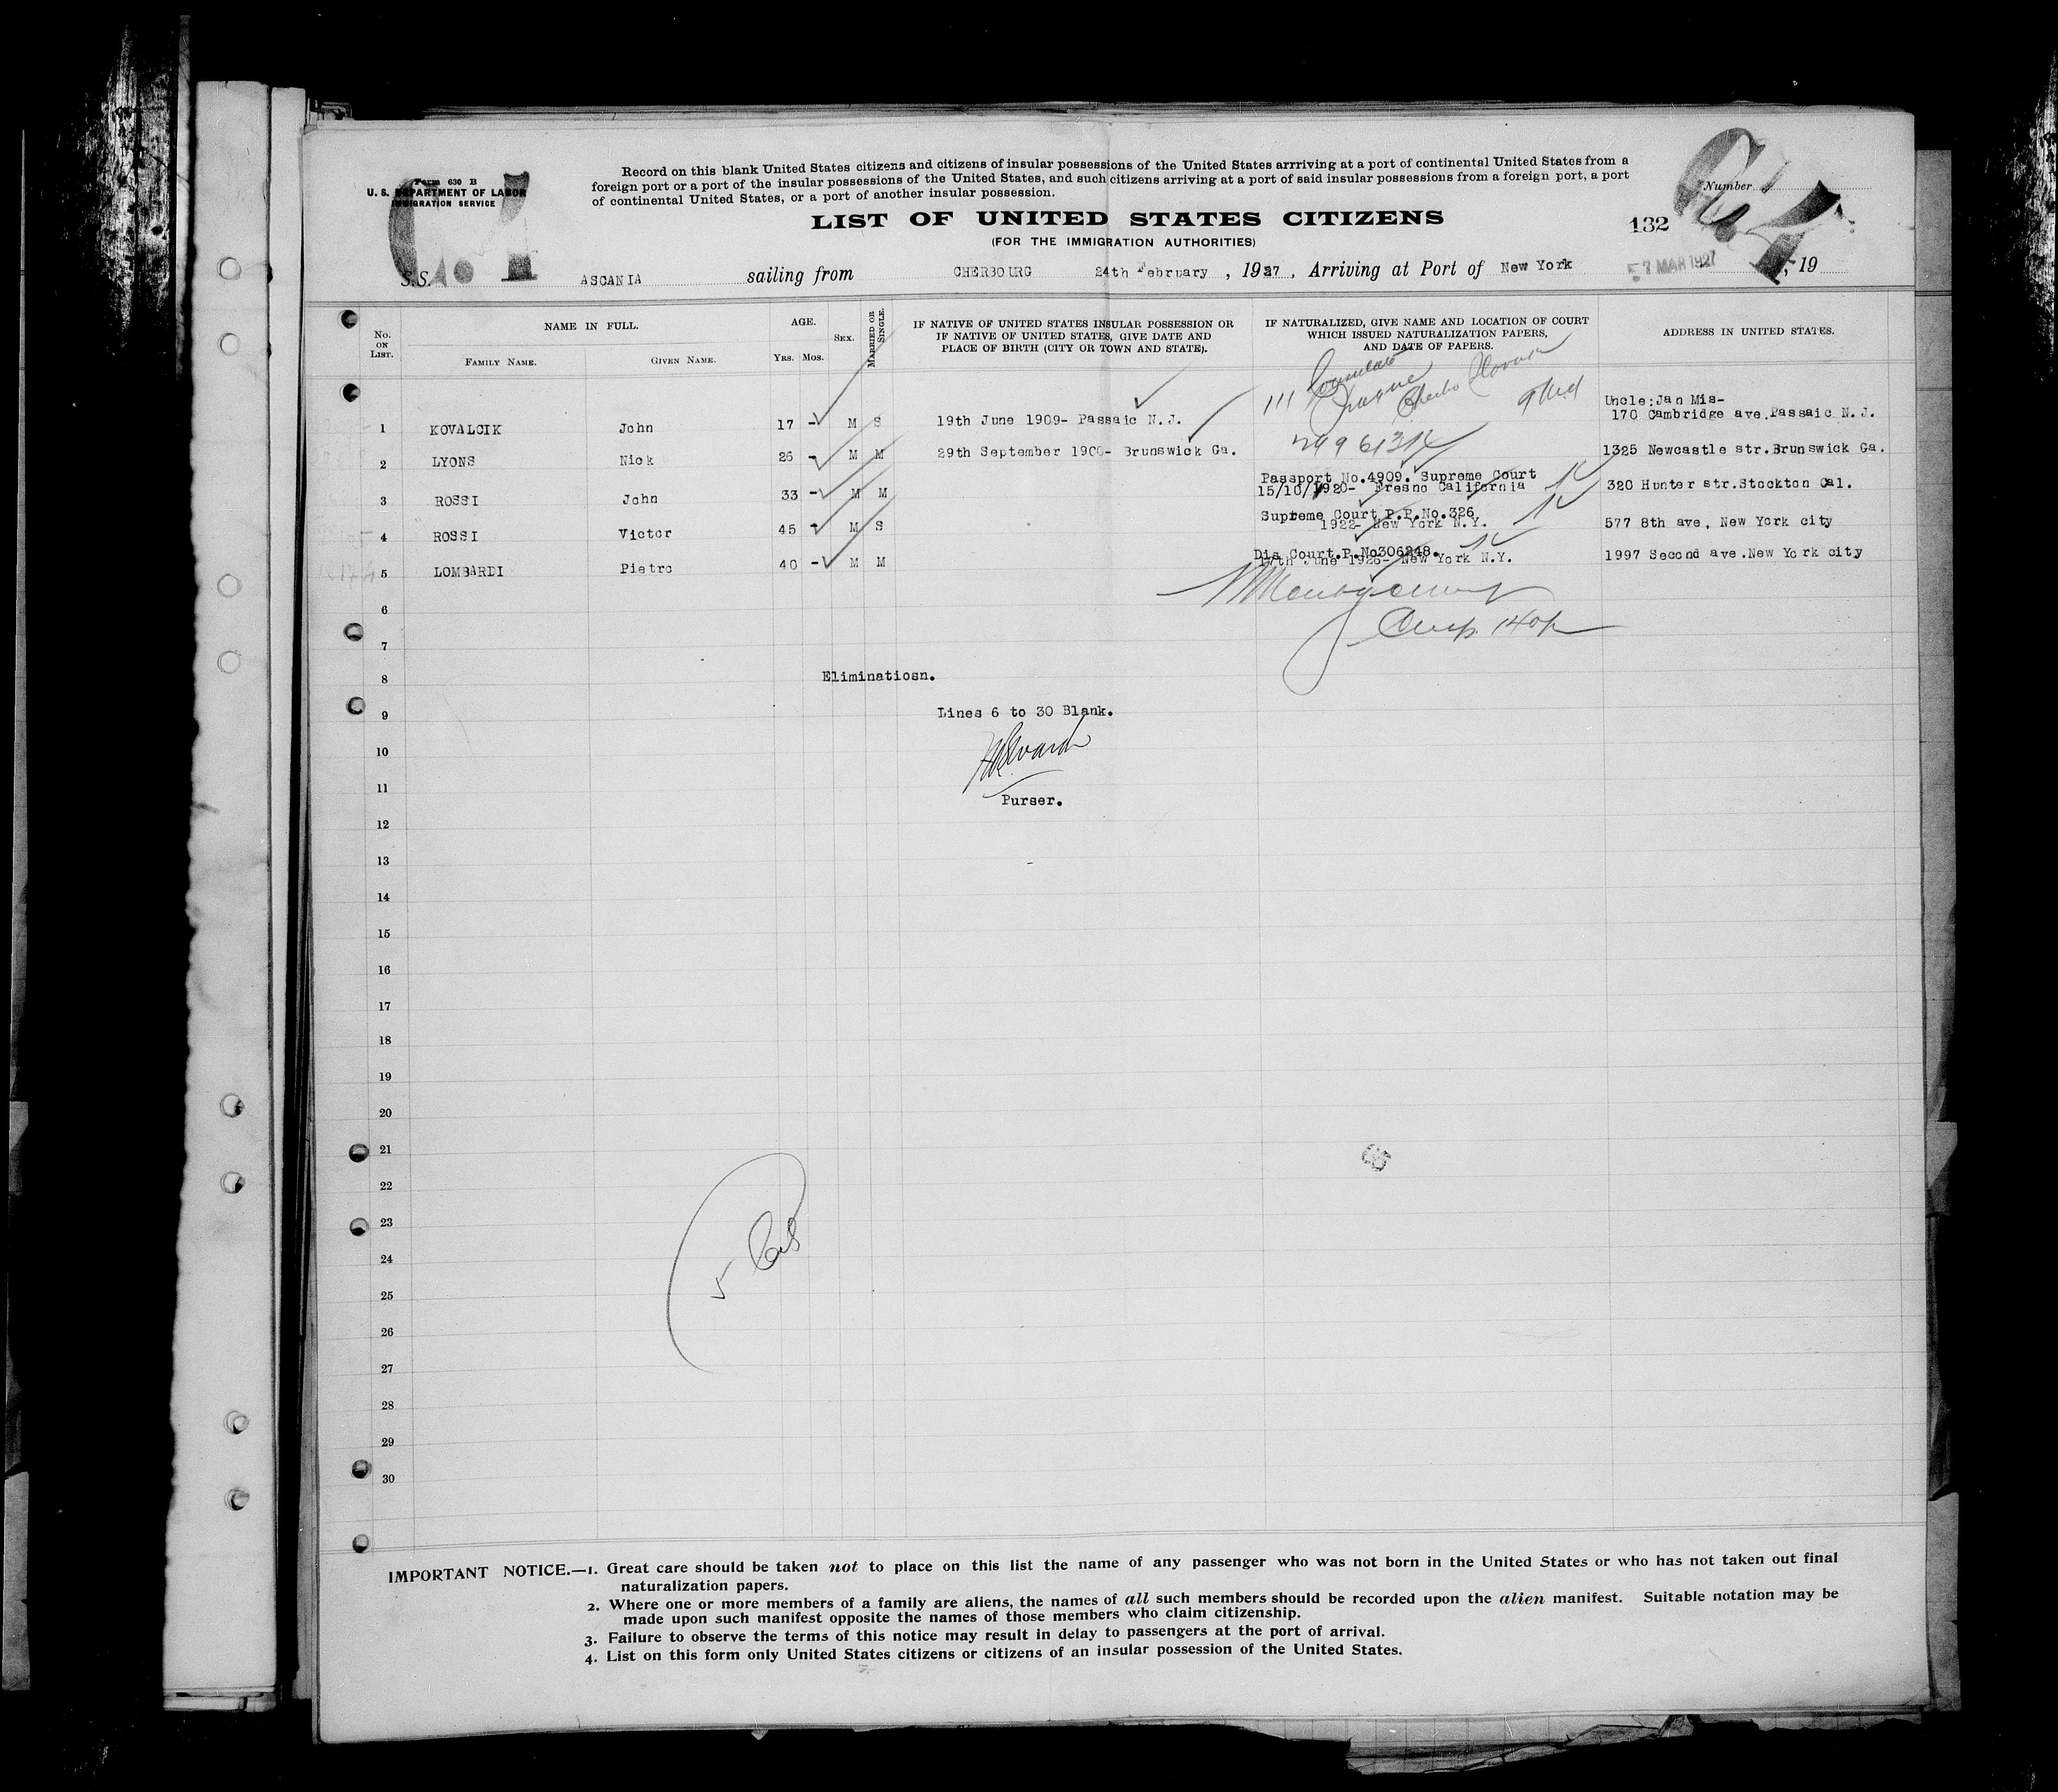 Form 630 B
U. S. DEPARTMENT OF LABOR
IMMIGRATION SERVICE
Record on this blank United States citizens and citizens of insular possessions of the United States arrriving at a port of continental United States from a
foreign port or a port of the insular possessions of the United States, and such citizens arriving at a port of said insular possessions from a foreign port, a port
of continental United States, or a port of another insular possession.
Number
LIST OF UNITED STATES CITIZENS
132
(FOR THE IMMIGRATION AUTHORITIES)
S.S. ASCANIA sailing from CHERBOURG 24th February, 1927, Arriving at Port of New York 7 MAR 1927, 19
No. ON LIST.
NAME IN FULL.
FAMILY NAME. GIVEN NAME.
AGE.
Yrs. Mos.
SEX.
MARRIED OR SINGLE.
IF NATIVE OF UNITED STATES INSULAR POSSESSION OR
IF NATIVE OF UNITED STATES, GIVE DATE AND
PLACE OF BIRTH (CITY OR TOWN AND STATE).
IF NATURALIZED, GIVE NAME AND LOCATION OF COURT
WHICH ISSUED NATURALIZATION PAPERS,
AND DATE OF PAPERS.
ADDRESS IN UNITED STATES.
Uncle:Jan Mis-
1 KOVALCIK John 17 - M S 19th June 1909- Passaic N.J. 170 Cambridge ave.Passaic N.J.
2 LYONS Nick 26 - M M 29th September 1900- Brunswick Ga. 1325 Newcastle str.Brunswick Ga.
Passport No.4909. Supreme Court
3 ROSSI John 33 - M M 15/10/1920- Fresno California 320 Hunter str.Stockton Cal.
Supreme Court P.P.No.326
4 ROSSI Victor 45 - M S 1922- New York N.Y. 577 8th ave, New York city
Dis Court.P.No306248.
5 LOMBARDI Pietro 40 - M M 17th June 1926- New York N.Y. 1997 Second ave.New York city
6
7
8 Eliminatiosn.
9 Lines 6 to 30 Blank.
10
11 Purser.
12
13
14
15
16
17
18
19
20
21
22
23
24
25
26
27
28
29
30
IMPORTANT NOTICE.—1. Great care should be taken not to place on this list the name of any passenger who was not born in the United States or who has not taken out final
naturalization papers.
2. Where one or more members of a family are aliens, the names of all such members should be recorded upon the alien manifest. Suitable notation may be
made upon such manifest opposite the names of those members who claim citizenship.
3. Failure to observe the terms of this notice may result in delay to passengers at the port of arrival.
4. List on this form only United States citizens or citizens of an insular possession of the United States.